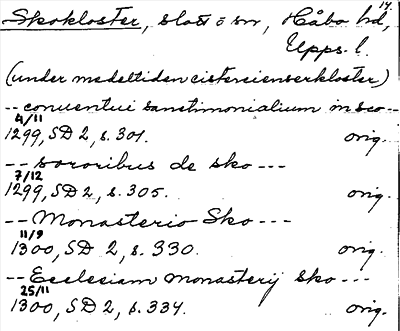 14.
Skokloster, slott o. sn, Håbo hd,
Upps. l.
(under medeltiden cistercienserkloster)
-- conuentui sanctimonialium in sco --
4/11
1299, SD 2, s. 301. orig.
-- sororibus de sko ---
7/12
1299, SD 2, s. 305. orig.
-- Monasterio Sko ---
11/9
1300, SD 2, s. 330. orig.
-- Ecclesiam monasterij sko ---
25/11
1300, SD 2, s. 334. orig.